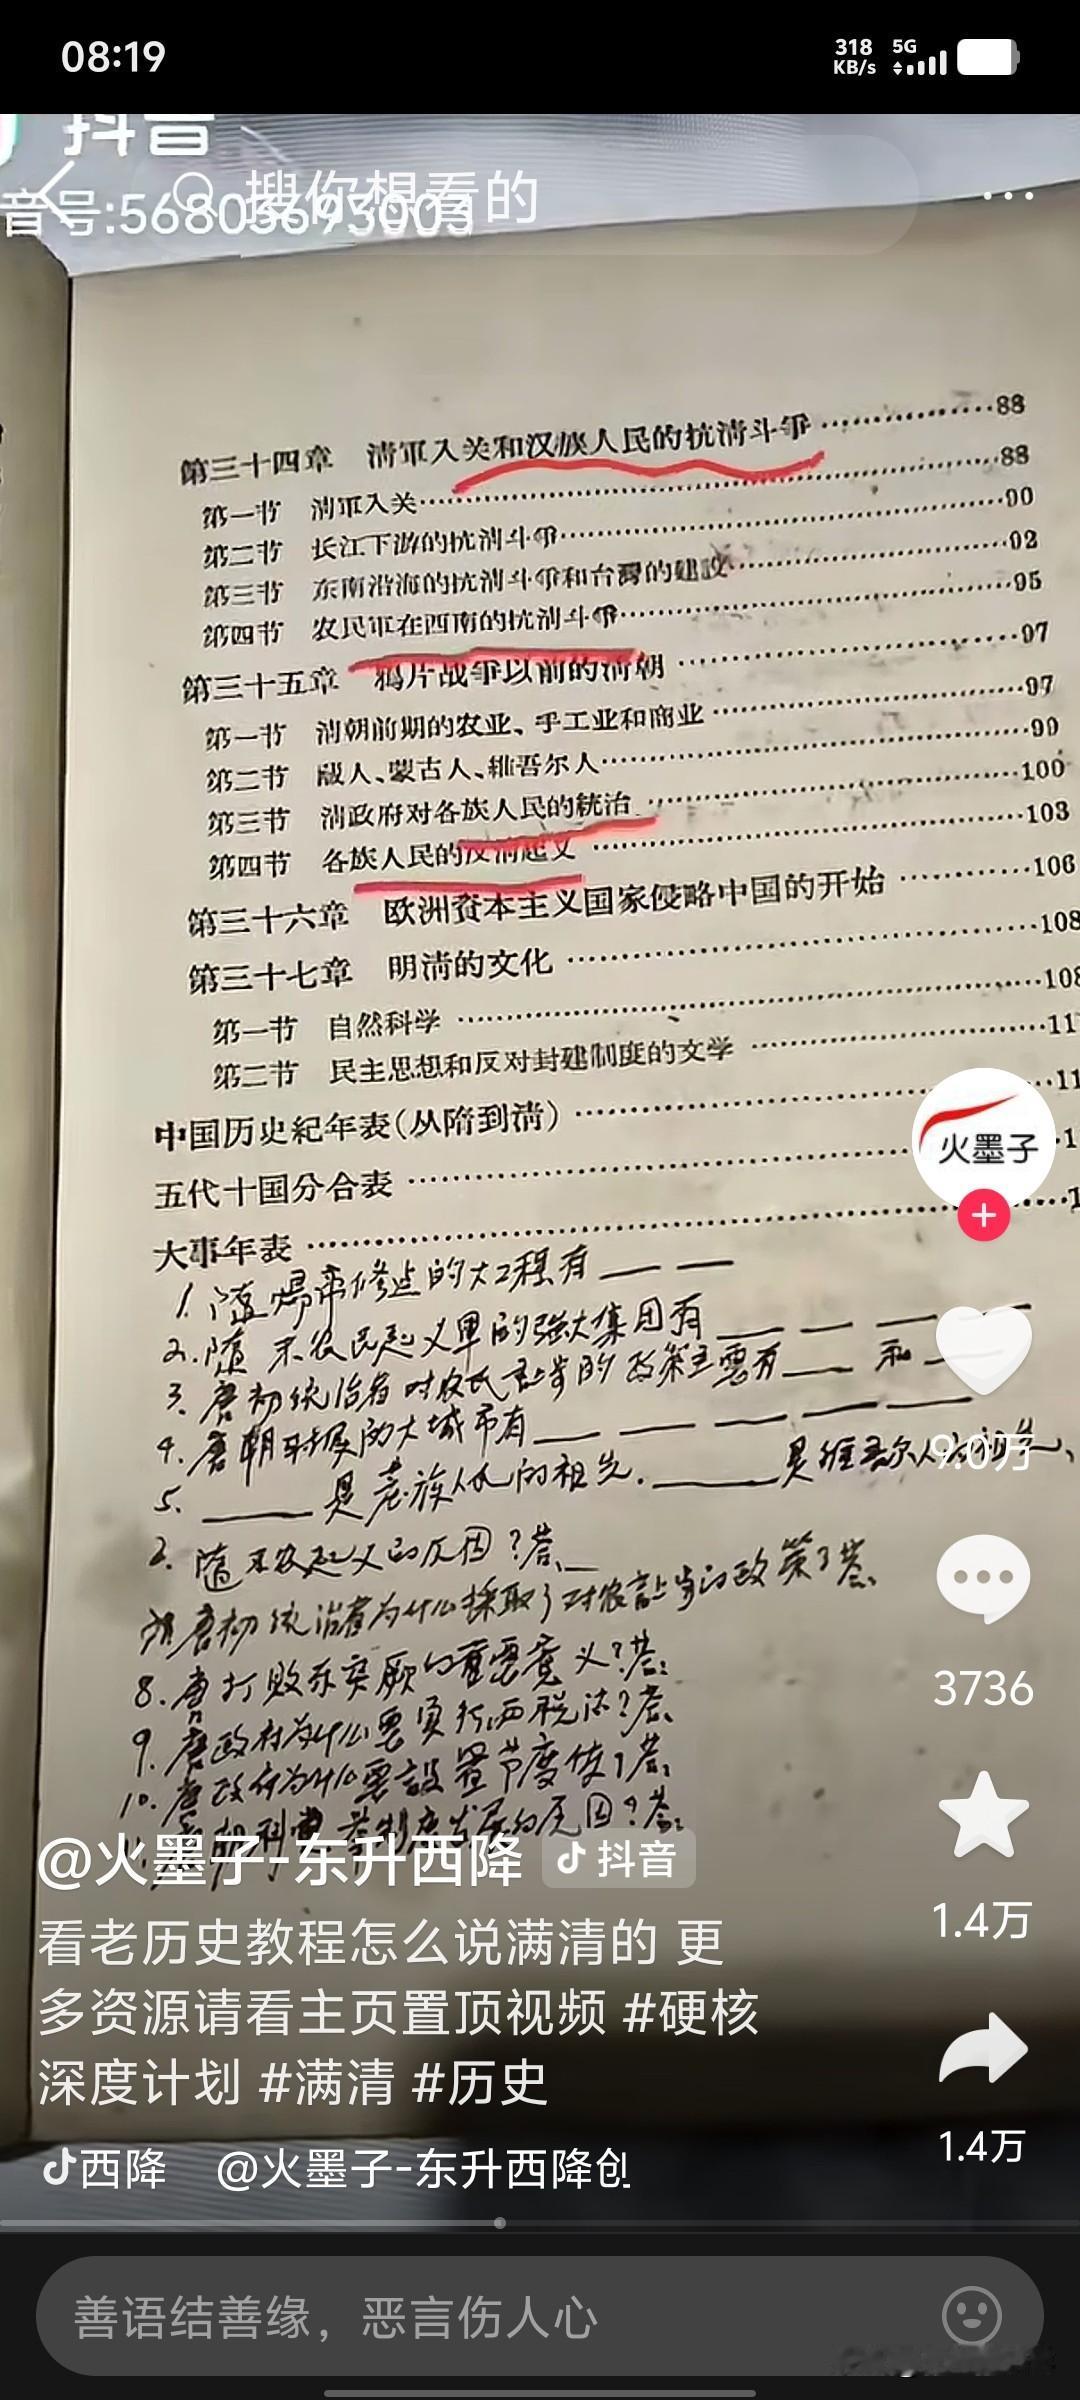 08:19
318 KB/s 5G
抖音
音号:56805693003
搜你想看的
第三十四章 清軍入关和汉族人民的抗清斗爭 88
第一节 清軍入关 88
第二节 长江下游的抗清斗爭 90
第三节 东南沿海的抗清斗爭和台灣的建設 92
第四节 农民軍在西南的抗清斗爭 95
第三十五章 鴉片战爭以前的清朝 97
第一节 清朝前期的农业、手工业和商业 97
第二节 藏人、蒙古人、維吾尔人 99
第三节 清政府对各族人民的統治 100
第四节 各族人民的反清起义 103
第三十六章 欧洲資本主义国家侵略中国的开始 106
第三十七章 明清的文化 108
第一节 自然科学 108
第二节 民主思想和反对封建制度的文学 11
中国历史紀年表(从隋到清) 11
五代十国分合表 1
大事年表 1
1. 隋煬帝修造的大工程有
2. 隨末农民起义军的强大集团有
3. 唐初统治者对农民让步的政策主要有 和
4. 唐朝时候的大城市有
5. 是 族人的祖先. 是维吾尔人的祖先、
隨末农起义的原因?答、
唐初统治者为什么採取了对农民让步的政策?答、
8. 唐打败东突厥的重要意义?答:
9. 唐政府为什么要实行两税法?答、
10. 唐政府为什么要設置节度使?答、
11. 制度发展的原因?答:
火墨子
9.0万
3736
1.4万
1.4万
@火墨子-东升西降 抖音
看老历史教程怎么说满清的 更
多资源请看主页置顶视频 #硬核
深度计划 #满清 #历史
西降 @火墨子-东升西降创
善语结善缘，恶言伤人心